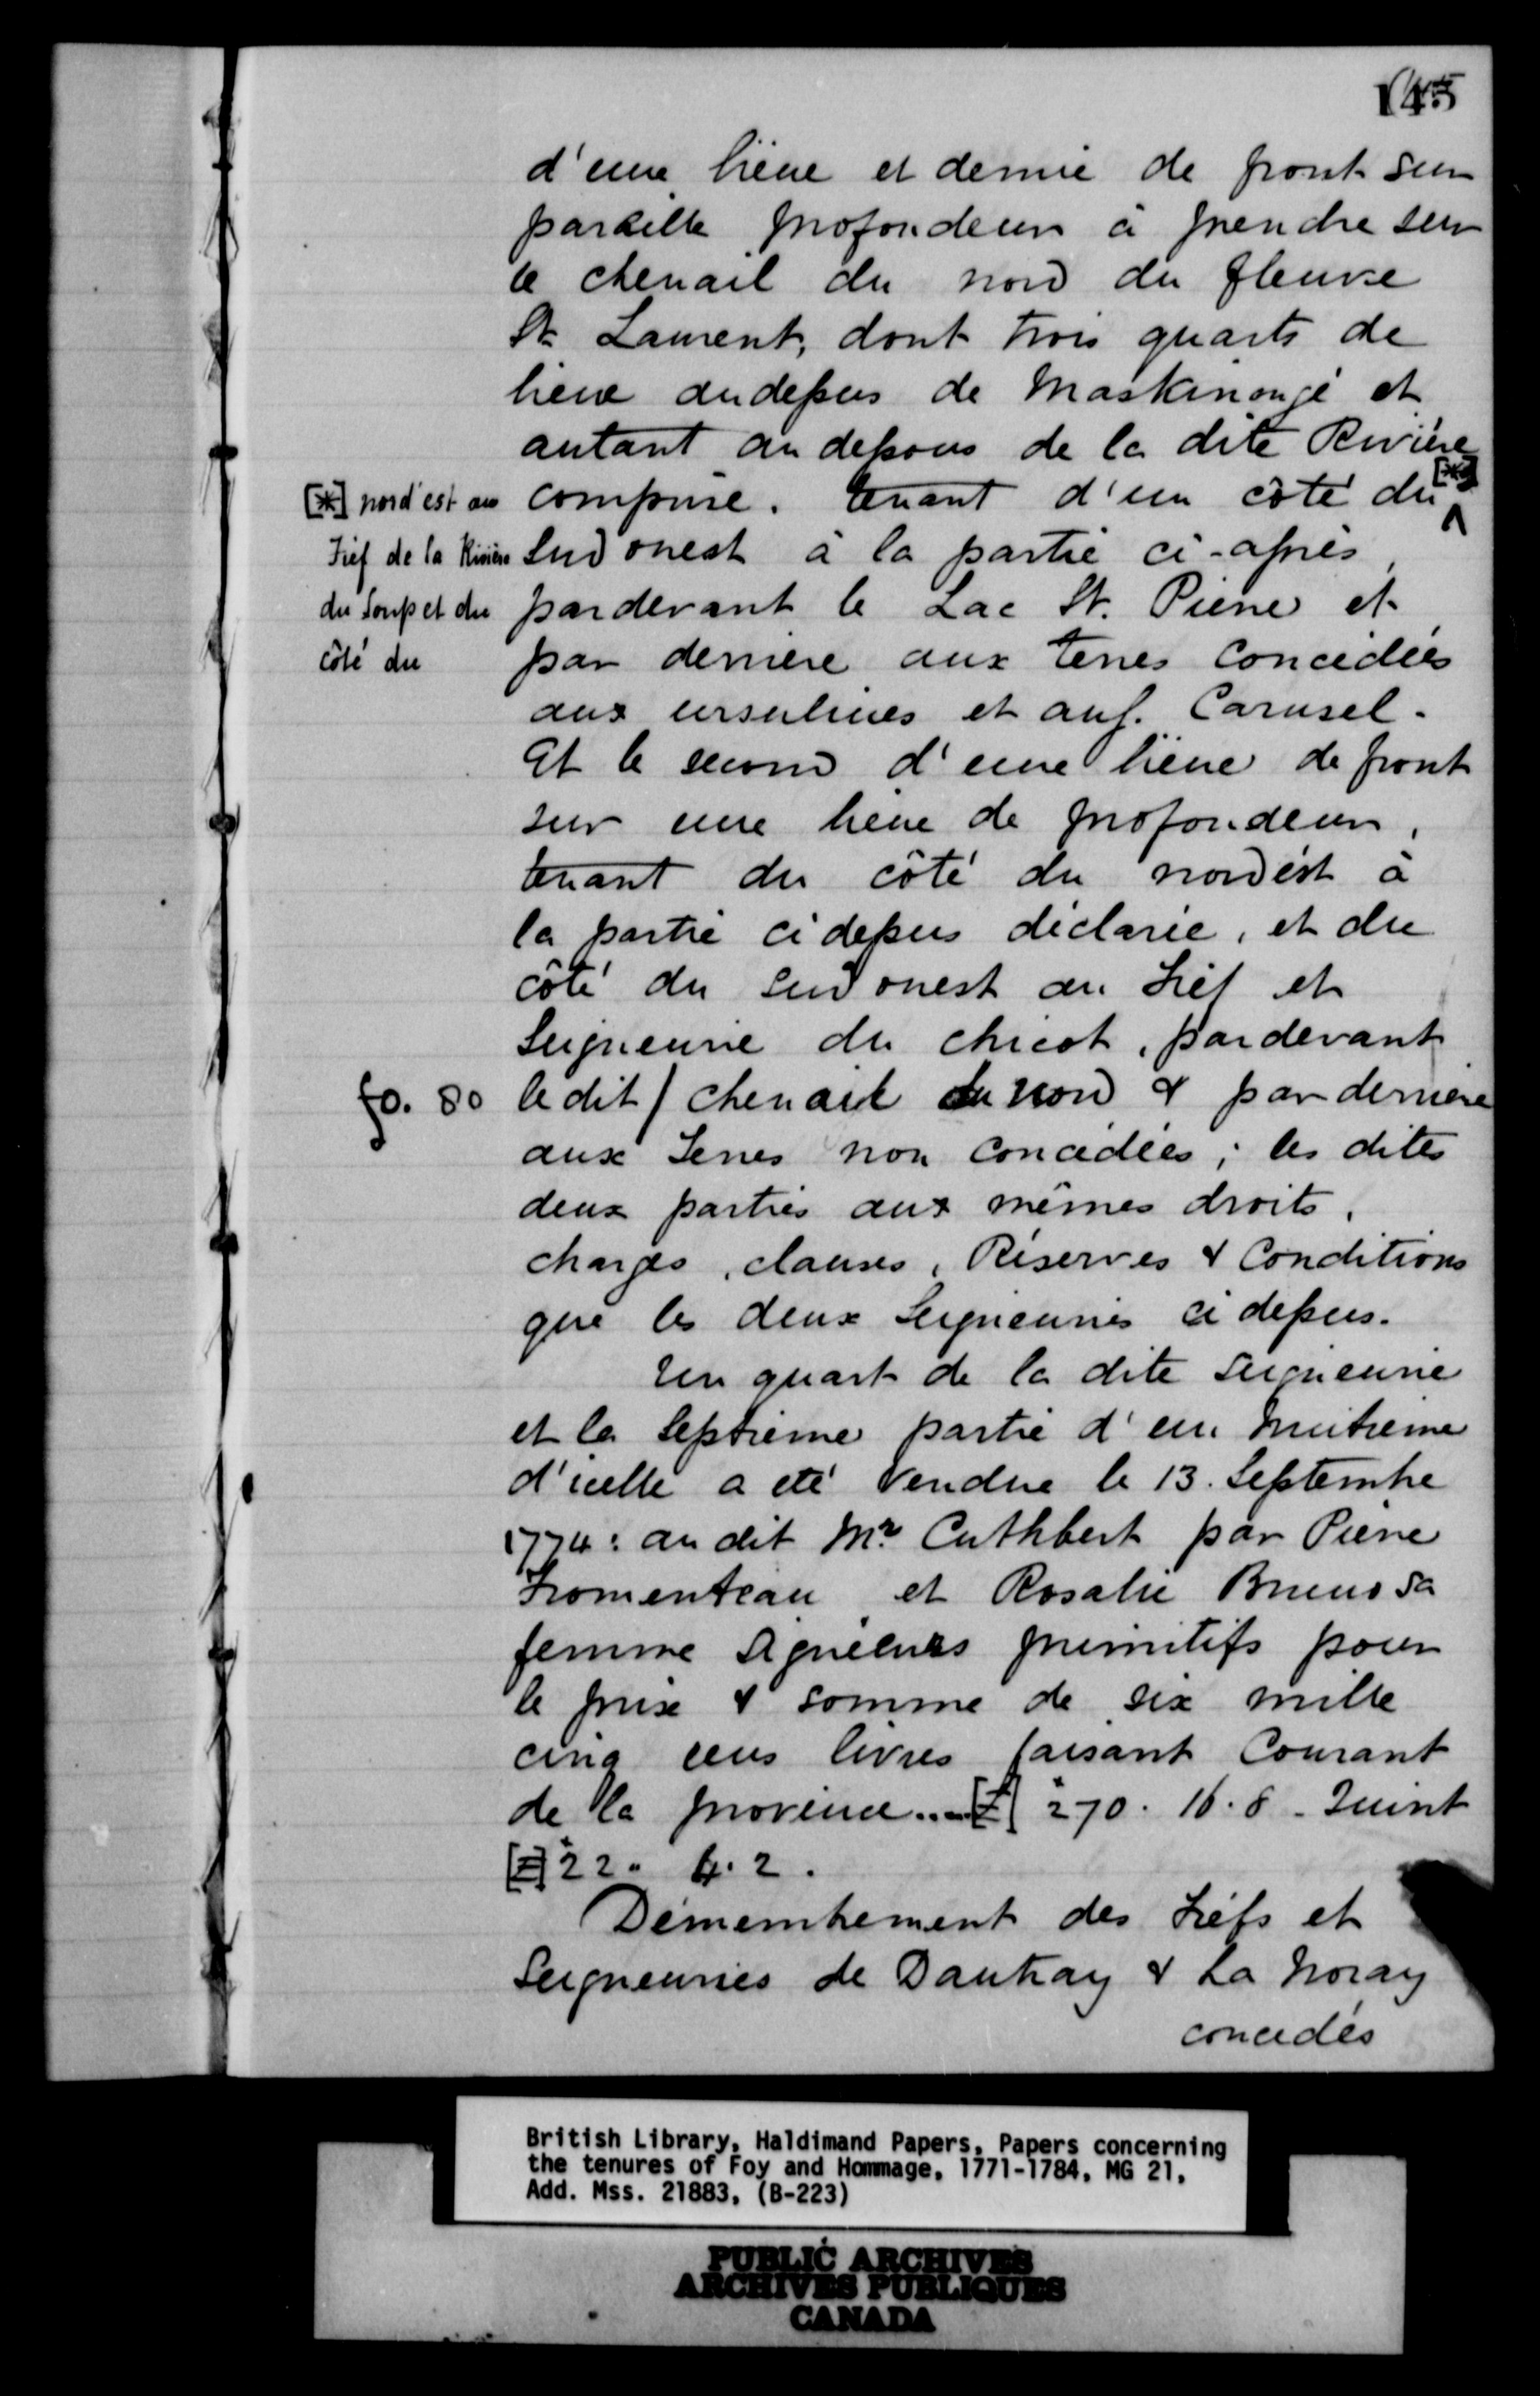 145
d'une liëue et demie de front sur
pareille profondeur à prendre sur
le chenail du nord du fleuve
St. Laurent, dont trois quarts de
lieue audessus de Maskinongé et
autant audessous de la dite Riviére
comprise. tenant d'un côté du [*]
[*] nord'est au
Fief de la Rivière
du Loup et du
côté du
Sud ouest à la partie ci-après,
pardevant le Lac St. Pierre et
par derriere aux terres Concedées
aux ursulines et au f. Carusel.
Et le second d'une liëue de front
sur une lieue de profondeur,
tenant du côté du nord'est à
la partie cidessus déclarée, et du
côté du sud ouest au Fief et
Seigneurie du chicot, pardevant
fo. 80 le dit / chenail du nord & par derriere
aux Terres non Concedées; les dites
deux parties aux mêmes droits,
charges, clauses, Réserves & Conditions
que les deux Seigneuries ci dessus.
Un quart de la dite Seigneurie
et la Septieme partie d'un huitieme
d'icelle a eté Vendue le 13. Septembre
1774: au dit Mr. Cuthbert par Pierre
Fromenteau et Rosalie Bruno sa
femme Signeurs primitifs pour
le prix & somme de six mille
cinq cens livres faisant Courant
de la province... [£] 270. 16. 8 - Quint
[£] 22. 4. 2.
Démembrement des Fiefs et
Seigneuries de Dautray & La Noray
concedés
British Library, Haldimand Papers, Papers concerning
the tenures of Foy and Hommage, 1771-1784, MG 21,
Add. Mss. 21883, (B-223)
PUBLIC ARCHIVES
ARCHIVES PUBLIQUES
CANADA